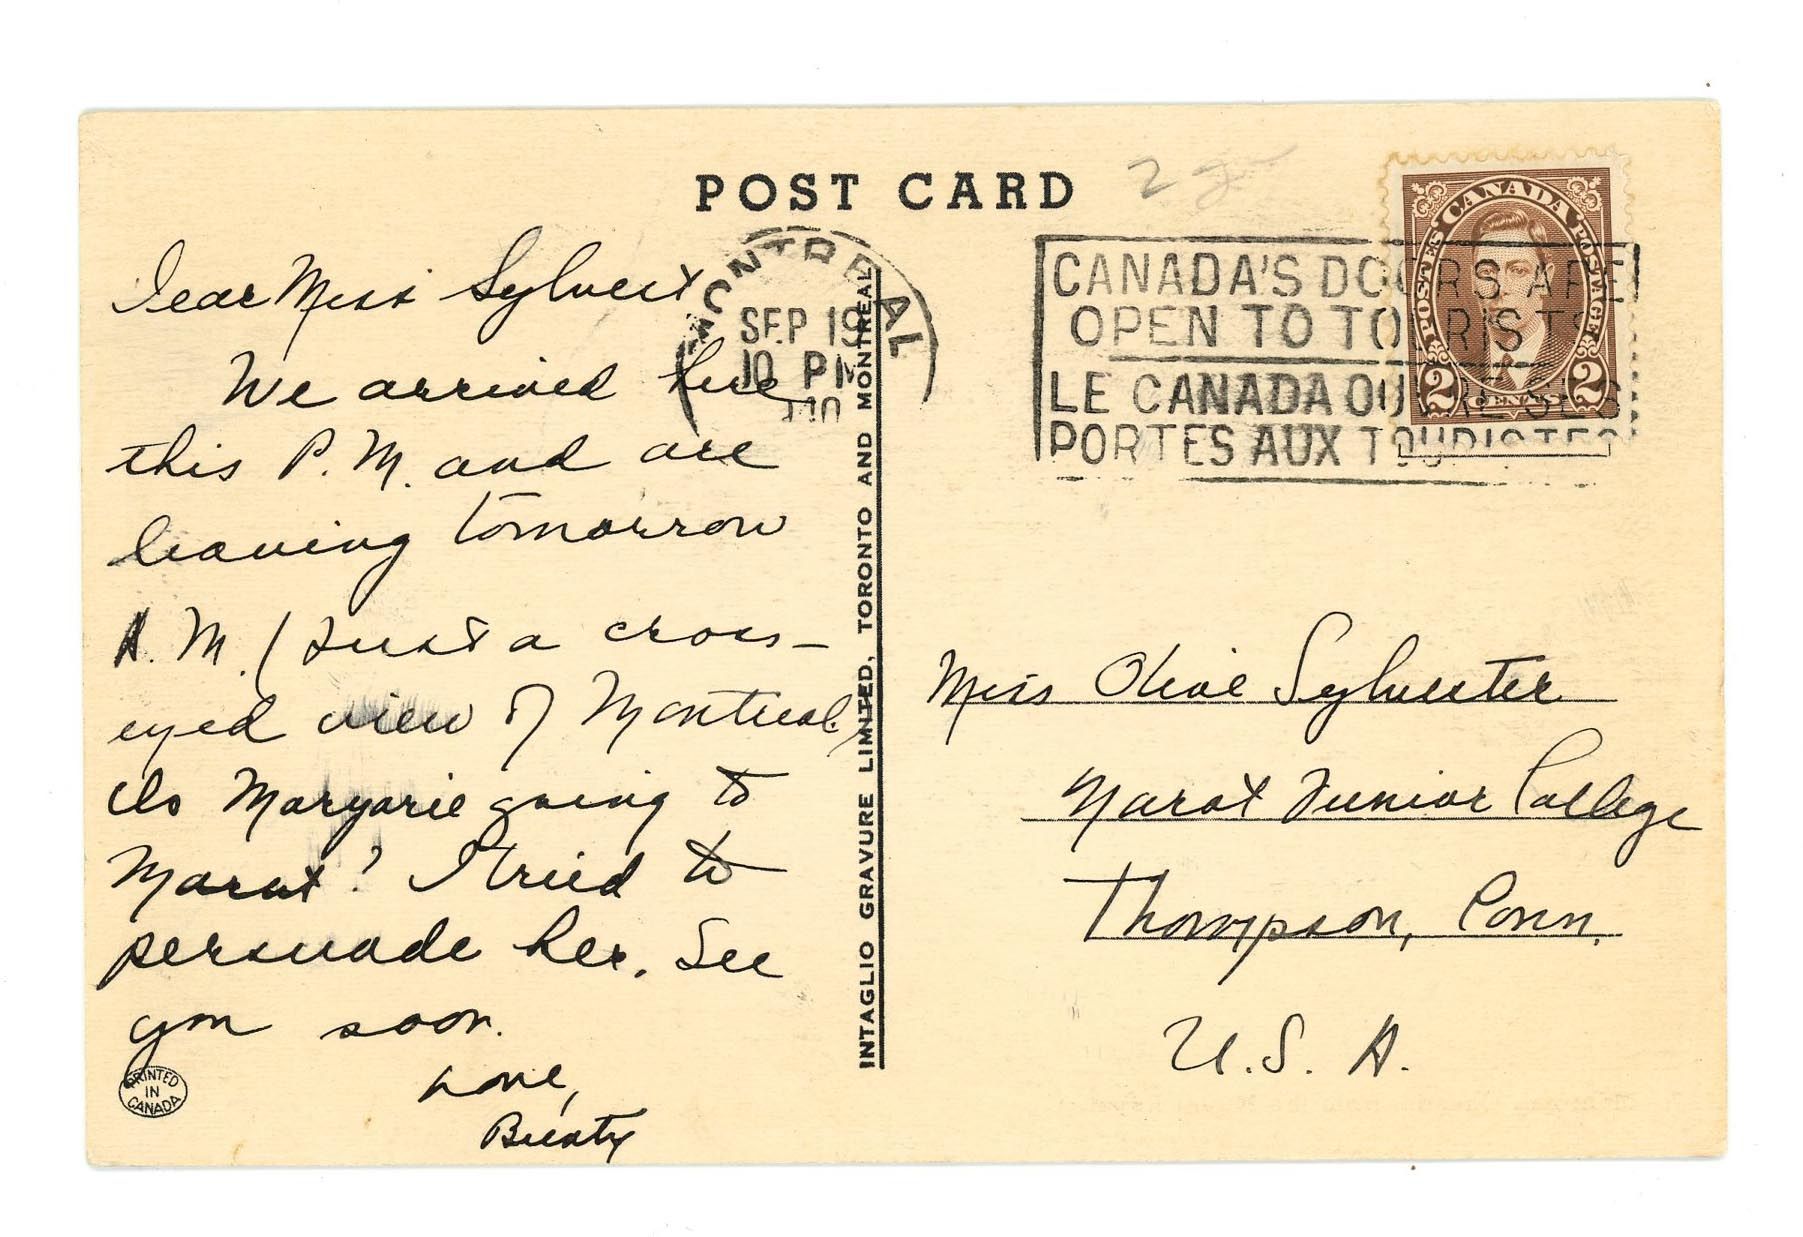 POST CARD
Dear Miss Sylvest
We arrived here
this P.M. and are
leaving tomorrow
A.M. (Just a cross-
eyed view of Montreal)
Is Marjorie going to
Marot? I tried to
persuade her. See
you soon.
Love,
PRINTED
IN
CANADA
INTAGLIO GRAVURE LIMITED, TORONTO AND MONTREAL
MONTREAL
SEP 19
10 PM
CANADA'S DOORS ARE
OPEN TO TOURISTS
LE CANADA OUVRE SES
PORTES AUX TOURISTES
CANADA
POSTES POSTAGE
2 CENTS 2
Miss Olive Sylvester
Marot Junior College
Thompson, Conn.
U.S.A.